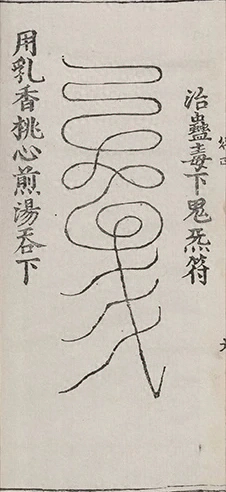 治蠱毒下鬼炁符
用乳香桃心煎湯吞下